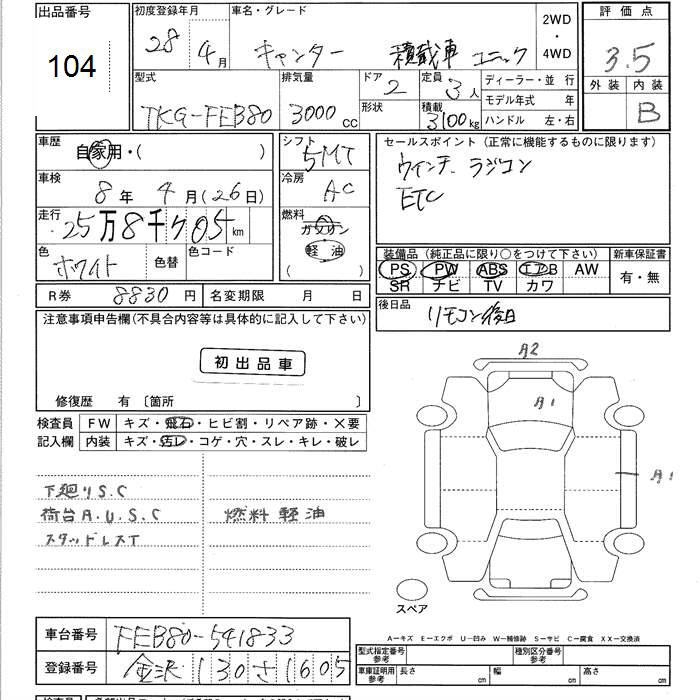 出品番号 初度登録年月 車名・グレード 2WD・4WD 評価点
104 28 4月 キャンター 積載車 ユニック 3.5
型式 排気量 ドア 定員 ディーラー・並行 外装 内装
TKG-FEB80 3000cc 2 3人 モデル年式 年 B
形状 積載 3100kg ハンドル 左・右
車歴 自家用・( ) シフト 5MT セールスポイント(正常に機能するものに限ります)
車検 8年 4月(26日) 冷房 AC ウインチ ラジコン
ETC
走行 25万8千705km 燃料 ガソリン 軽油
色 ホワイト 色替 色コード 装備品(純正品に限り○をつけて下さい) 新車保証書
PS PW ABS エアB AW 有・無
SR ナビ TV カワ
R券 8830円 名変期限 月 日 後日品 リモコン後日
注意事項申告欄(不具合内容等は具体的に記入して下さい)
初出品車
修復歴 有 〔箇所 〕
A2
A1
A1
検査員 FW キズ・飛石・ヒビ割・リペア跡・×要
記入欄 内装 キズ・汚レ・コゲ・穴・スレ・キレ・破レ
下廻りS.C
荷台A.U.S.C 燃料軽油
スタッドレスT
スペア
車台番号 FEB80-541833
A－キズ E－エクボ U－凹み W－補修跡 S－サビ C－腐食 XX－交換済
登録番号 金沢130さ1605
型式指定番号 参考 種別区分番号 参考
車庫証明用 参考 長さ cm 幅 cm 高さ cm